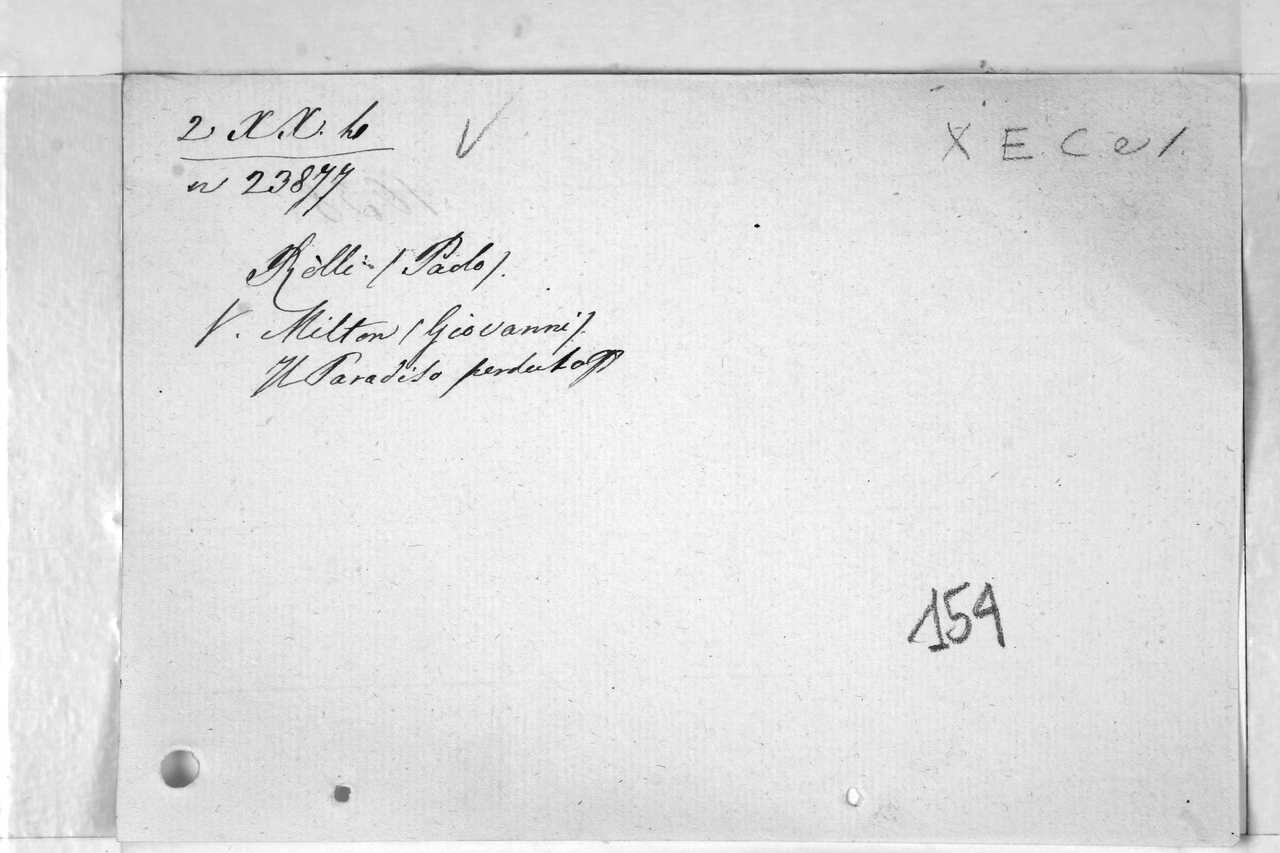 2 XX. h
n 23877
V
X E. C. e 1.
Rolli (Paolo).
V. Milton (Giovanni).
Il Paradiso perduto
154